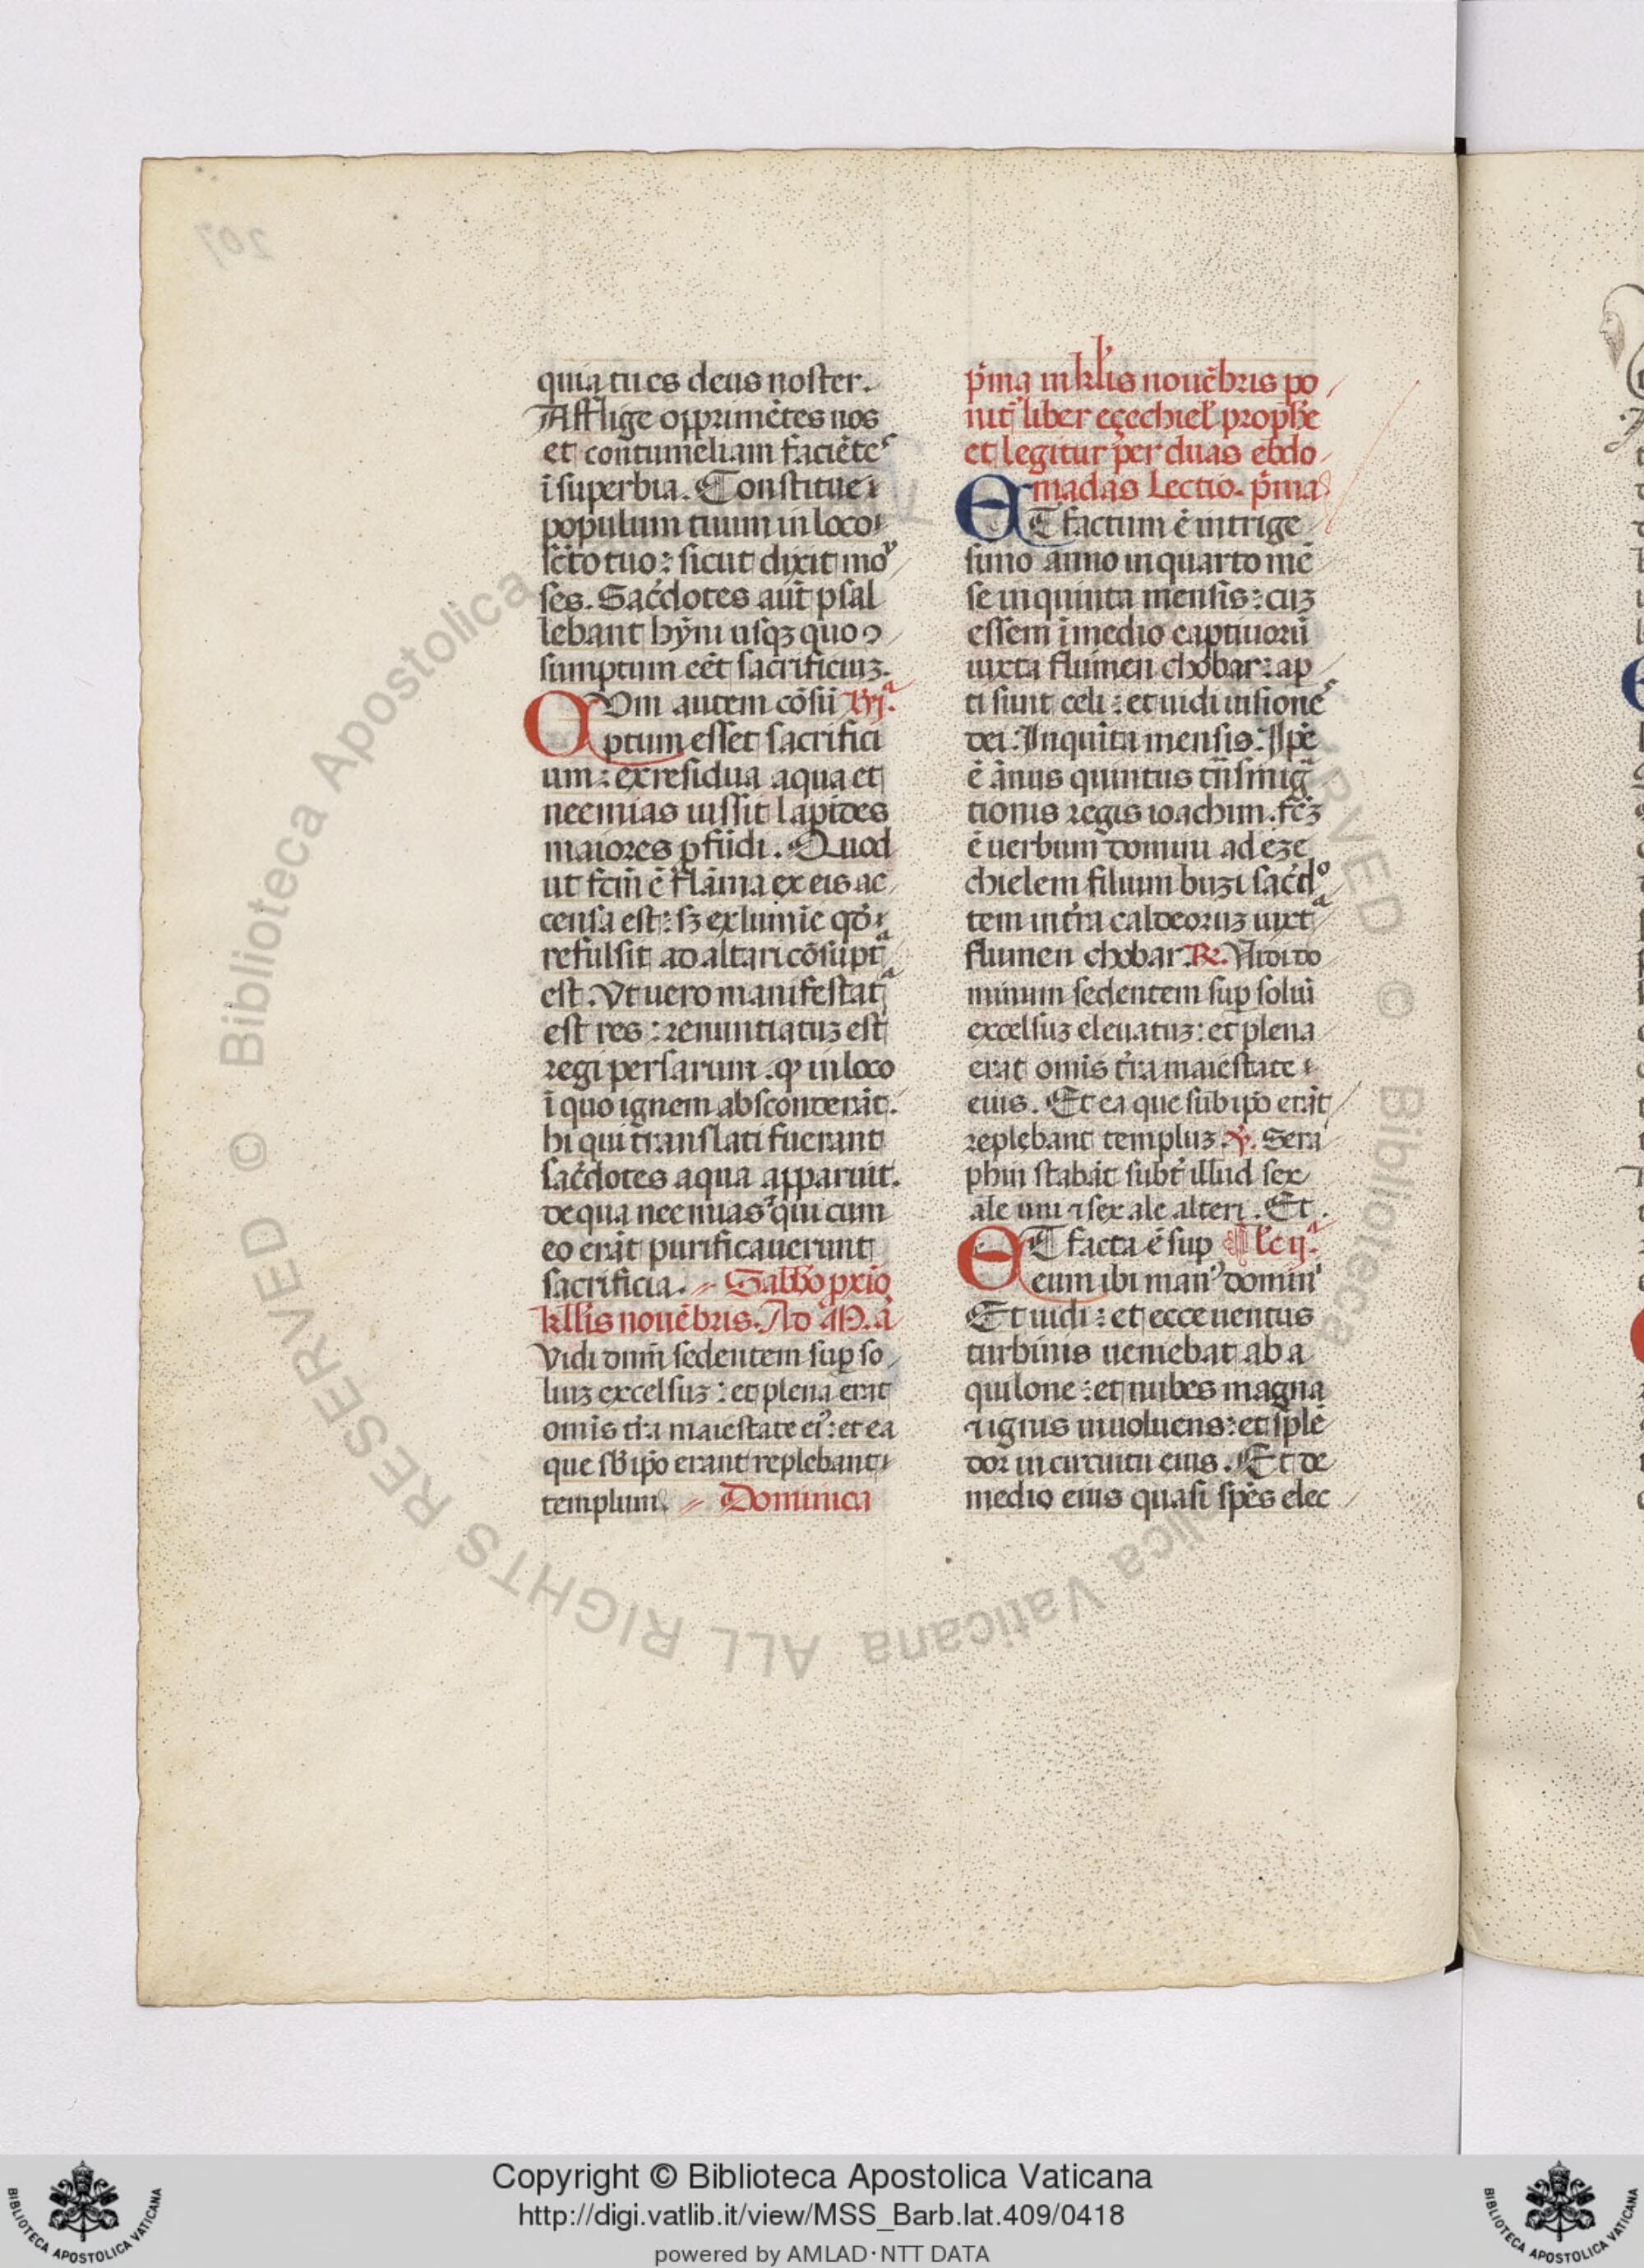 quia tu es deus noster.
Afflige opprimētes nos
et contumeliam faciētes
ī superbia. Constitue
populum tuum in loco
scō tuo: sicut dixit mo
ses. Sacdotes aūt psal
lebant hym̄ usqꝫ quo ꝯ
sumptum eēt sacrificiuꝫ.
Qum autem cōsū
ptum esset sacrifici
um: ex residua aqua et
neemias iussit lapides
maiores pfūdi. Quod
ut fcm̄ ē flāma ex eis ac
censa est: sꝫ ex lumīe qd
refulsit ad altari cōsūpta
est. Ut uero manifestata
est res: renuntiatuꝫ est
regi persarum. ꝙ in loco
ī quo ignem absconderāt.
hi qui translati fuerant
sacdotes aqua apparuit.
de qua neemias ⁊ qui cum
eo erāt purificauerunt
sacrificia. Sabbo pxīo
kllis nouēbris. Ad M. a
Vidi dnm̄ sedentem sup so
liuꝫ excelsuꝫ: et plena erat
omīs tra maiestate eiꝰ: et ea
que sb ipō erant replebant
templum. Dominica
pma in klis nouēbris po
nit liber eçechiel prophe
et legitur per duas ebdo
madas Lectio. pma
ET factum ē in trige
simo anno in quarto mē
se in quinta mensis: cuꝫ
essem ī medio captiuoꝝ
iuxta flumen chobar: ap
ti sunt celi: et uidi uisiones
dei. In quīta mensis. Ipē
ē ānus quintus tnsmig
tionis regis ioachim. fcꝫ
ē uerbum domini ad eze
chielem filium buzi sacdo
tem in tra caldeoruꝫ iuxta
flumen chobar. R. Vidi do
minum sedentem sup soliū
excelsuꝫ eleuatuꝫ: et plena
erat omīs tra maiestate
eius. Et ea que sub ipō erāt
replebant templuꝫ. V. Sera
phin stabāt subt illud sex
ale uni ⁊ sex ale alteri. Et.
ET facta ē sup lc ij.a
eum ibi manꝰ domini
Et uidi: et ecce uentus
turbinis ueniebat ab a
quilone: et nubes magna
⁊ ignis inuoluens: et splē
dor in circuitu eius. Et de
medio eius quasi spēs elec
Copyright © Biblioteca Apostolica Vaticana
http://digi.vatlib.it/view/MSS_Barb.lat.409/0418
powered by AMLAD·NTT DATA
BIBLIOTECA APOSTOLICA VATICANA
BIBLIOTECA APOSTOLICA VATICANA